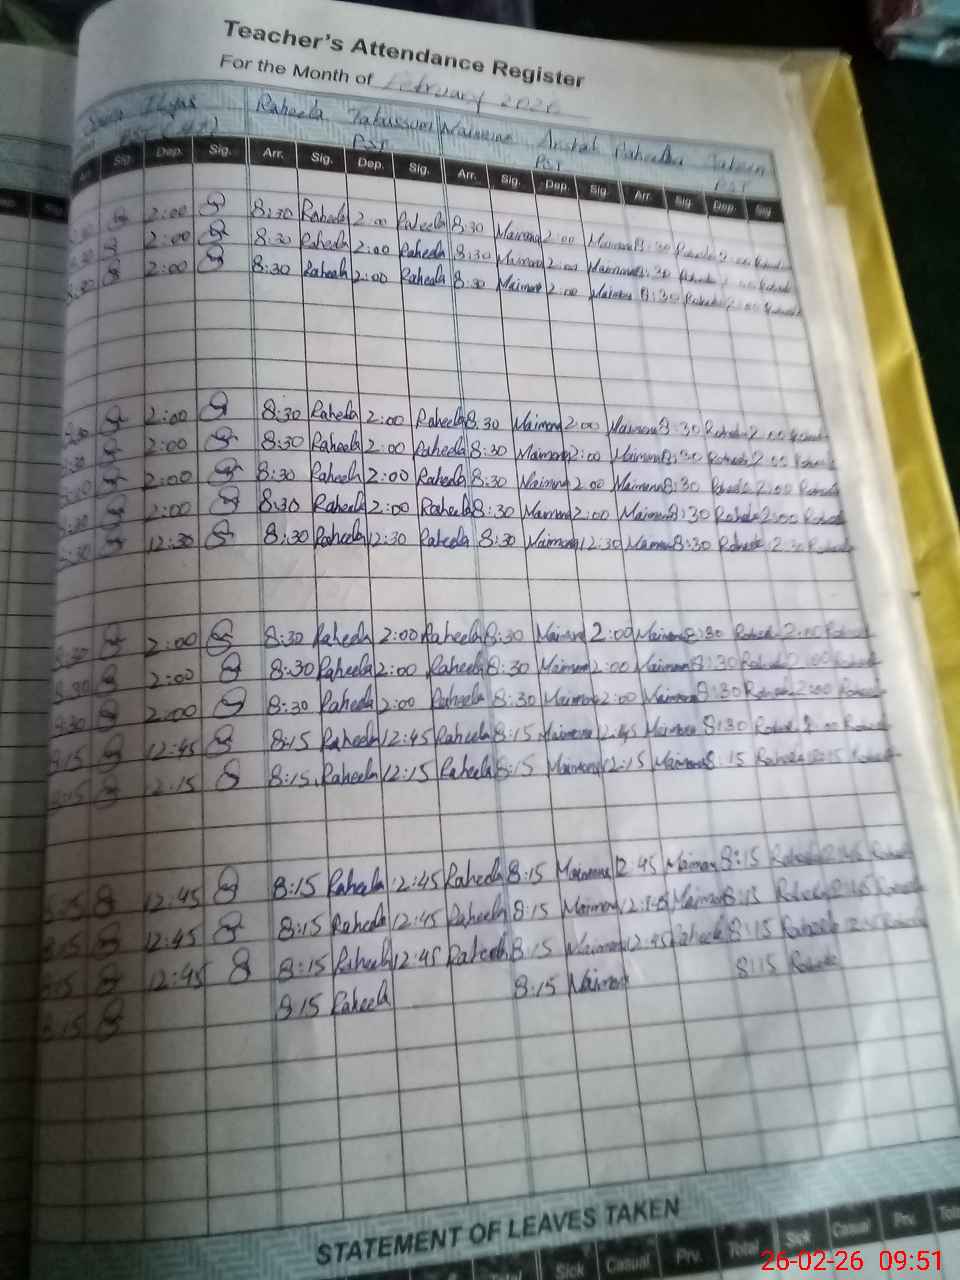 Teacher's Attendance Register
For the Month of February 2026
Ilyas Raheela Tabussum Maimona Raheela
PST PST PST
Sig. Dep. Sig. Arr. Sig. Dep. Sig. Arr. Sig. Dep. Sig. Arr. Sig. Dep. Sig.
2:00 8:30 Raheela 2:00 Raheela 8:30 Maimona 2:00 Maimona 8:30 Raheela 2:00 Raheela
2:00 8:30 Raheela 2:00 Raheela 8:30 Maimona 2:00 Maimona 8:30 Raheela 2:00 Raheela
8:30 2:00 8:30 Raheela 2:00 Raheela 8:30 Maimona 2:00 Maimona 8:30 Raheela 2:00 Raheela
8:30 2:00 8:30 Raheela 2:00 Raheela 8:30 Maimona 2:00 Maimona 8:30 Raheela 2:00 Raheela
8:30 2:00 8:30 Raheela 2:00 Raheela 8:30 Maimona 2:00 Maimona 8:30 Raheela 2:00 Raheela
8:30 2:00 8:30 Raheela 2:00 Raheela 8:30 Maimona 2:00 Maimona 8:30 Raheela 2:00 Raheela
8:30 2:00 8:30 Raheela 2:00 Raheela 8:30 Maimona 2:00 Maimona 8:30 Raheela 2:00 Raheela
8:30 12:30 8:30 Raheela 12:30 Raheela 8:30 Maimona 12:30 Maimona 8:30 Raheela 12:30 Raheela
8:30 2:00 8:30 Raheela 2:00 Raheela 8:30 Maimona 2:00 Maimona 8:30 Raheela 2:00 Raheela
8:30 2:00 8:30 Raheela 2:00 Raheela 8:30 Maimona 2:00 Maimona 8:30 Raheela 2:00 Raheela
8:30 2:00 8:30 Raheela 2:00 Raheela 8:30 Maimona 2:00 Maimona 8:30 Raheela 2:00 Raheela
8:15 12:45 8:15 Raheela 12:45 Raheela 8:15 Maimona 12:45 Maimona 8:30 Raheela 2:00 Raheela
8:15 12:15 8:15 Raheela 12:15 Raheela 8:15 Maimona 12:15 Maimona 8:15 Raheela 12:15 Raheela
8:15 12:45 8:15 Raheela 12:45 Raheela 8:15 Maimona 12:45 Maimona 8:15 Raheela 12:45 Raheela
8:15 12:45 8:15 Raheela 12:45 Raheela 8:15 Maimona 12:45 Maimona 8:15 Raheela 12:45 Raheela
8:15 12:45 8:15 Raheela 12:45 Raheela 8:15 Maimona 12:45 Raheela 8:15 Raheela 12:45 Raheela
8:15 8:15 Raheela 8:15 Maimona 8:15 Raheela
STATEMENT OF LEAVES TAKEN
Total Sick Casual Prv. Total Sick Casual Prv. Total
26-02-26 09:51